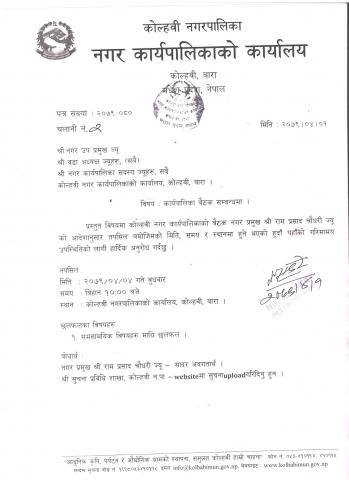 कोल्हवी नगरपालिका
नगर कार्यपालिकाको कार्यालय
कोल्हवी, बारा
मधेश प्रदेश, नेपाल
पत्र संख्या : २०७९-०८०
चलानी नं. २
मिति : २०७९/०४/०१
श्री नगर उप प्रमुख ज्यू
श्री वडा अध्यक्ष ज्यूहरु, (सबै)
श्री नगर कार्यपालिका सदस्य ज्यूहरु, सबै
कोल्हवी नगर कार्यपालिकाको कार्यालय, कोल्हवी, बारा ।
विषय : कार्यपालिका बैठक सम्बन्धमा ।
प्रस्तुत विषयमा कोल्हवी नगर कार्यपालिकाको बैठक नगर प्रमुख श्री राम प्रसाद चौधरी ज्यू
को आदेशानुसार तपसिल बमोजिमको मिति, समय र स्थानमा हुने भएको हुदाँ यहाँको गरिमामय
उपस्थितिको लागी हार्दिक अनुरोध गर्दछु ।
तपसिल
मिति : २०७९/०४/०४ गते बुधबार
समय : बिहान १०:०० बजे
स्थान : कोल्हवी नगरपालिकाको कार्यालय, कोल्हवी, बारा ।
छलफलका विषयहरु
१. समसामयिक विषयहरु माथि छलफल ।
बोधार्थ :
नगर प्रमुख श्री राम प्रसाद चौधरी ज्यू – सादर अवगतार्थ ।
श्री सुचना प्रबिधि शाखा, कोल्हवी न.पा – websiteमा सुचनाuploadगरिदिनु हुन ।
"आधुनिक कृषि, पर्यटन र औद्योगिक ग्रामको स्थापना, समुन्नत कोल्हवी हाम्रो चाहना"
इमेल info@kolhabimun.gov.np, वेबसाइट : www.kolhabimun.gov.np